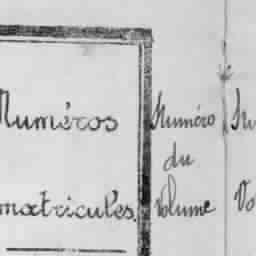 Numéros
matricules.
Numéro
du
Volume